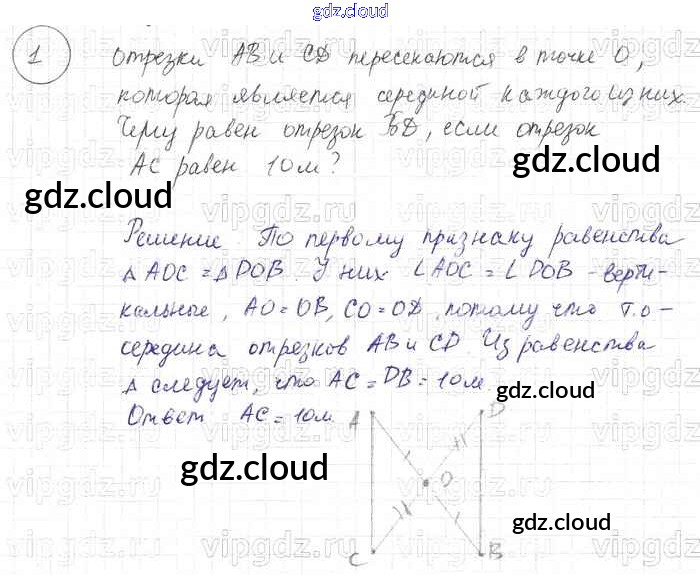 gdz.cloud
1 отрезки AB и CD пересекаются в точке O,
которая является серединой каждого из них.
Чему равен отрезок BD, если отрезок
AC равен 10 м?
gdz.cloud
gdz.cloud
Решение. По первому признаку равенства
△ AOC = △ DOB. У них ∠AOC = ∠DOB - верти-
кальные, AO = OB, CO = OD, потому что т. O -
середина отрезков AB и CD. Из равенства
△ следует, что AC = DB = 10 м.
gdz.cloud
Ответ AC = 10 м.
A D
gdz.cloud
O
gdz.cloud
C B
vipgdz.ru